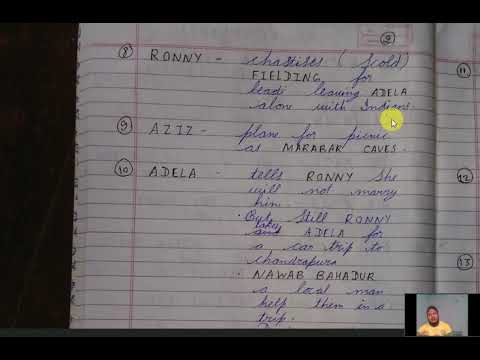 9
8 RONNY - chastises ( scold)
FIELDING for
leadi leaving ADELA
alone with Indians
9 AZIZ - plans for picnic
as MARABAR CAVES.
10 ADELA - tells RONNY she
will not marry
him.
• But still RONNY
takes
and ADELA for
a car trip to
chandrapura
• NAWAB BAHADUR
a local man
help them in a
trip.
11
12
13